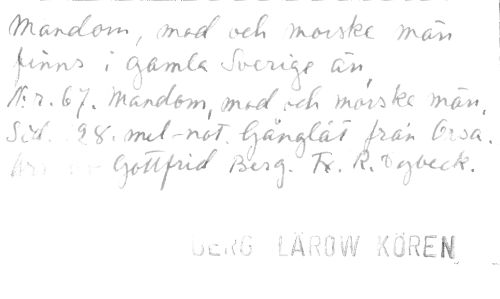 Mandom, mod och morske män
finns i gamla Sverige än,
N:r. 67. Mandom, mod och morske män,
Sid. 28. mel-not. Gånglåt från Orsa.
Gottfrid Berg. Tx. R. Dybeck.
BERG LÄROW KÖREN